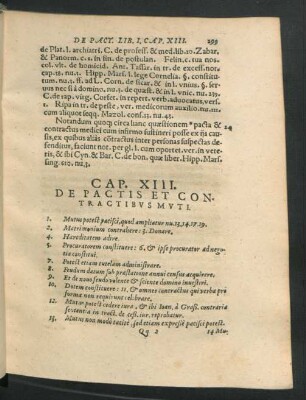 DE PACT. LIB. I. CAP. XIII. 295
de Plat. l. archiatri. C. de profess. & med. lib. 10. Zabar.
& Panorm. c. 1. in fin. de postulan. Felin. c. tua nos.
col. vlt. de homicid. Ant. Tessar. in tr. de excess. nor.
exp. 12. nu. 1. Hipp. Mars. l. lege Cornelia. §. constitu-
tum. nu. 1. vers. medicorum. ad L. Corn. de sicar. & in l. vnius. §. ser-
uus nec si à domino. nu. 3. de quæst. & in l. vnic. nu. 193.
C. de rap. virg. Corset. in repert. verb. aduocatus, vers.
1. Ripa in tr. de peste, ver. remed. ad curan. nu. 28. nu.
cum aliquot seqq. Mazol. cons. 23. nu. 41.
Notandum quoq; circa hanc quæstionem *pacta & 24
contractus medici cum infirmo sustineri posse ex ijs cau-
sis, ex quibus aliàs cōtractus inter personas suspectas de-
fenditur, faciunt not. per gl. l. cum oportet. ver. in cete-
ris, & ibi Cyn. & Bar. C. de bon. quæ liber. Hipp. Mars.
sing. 612. nu. 3.
CAP. XIII.
DE PACTIS ET CON-
TRACTIBVS MVTI.
1. Mutus potest pacisci, quod ampliatur nu. 13. 14. 17. 19.
2. Matrimonium contrahere: 3. Donare.
4. Hæreditatem adire.
5. Procuratorem constituere: 6. & ipse procurator ad nego-
tia constitui.
7. Potest etiam tutelam administrare.
8. Feudum datum sub præstatione annui census acquirere.
9. Et de nouo feudo valente & sciente domino inuestiri.
10. Dotem constituere: 11. & omnes contractus qui verba pro
forma non requirunt celebrare.
12. Mutus potest cedere iura. & ibi Ioan. à Grass. contraria
sententia in tract. de cess. iur. reprobatur.
13. Mutus non modo tacitè, sed etiam expresse pacisci potest.
Qq 2 14 Mu-